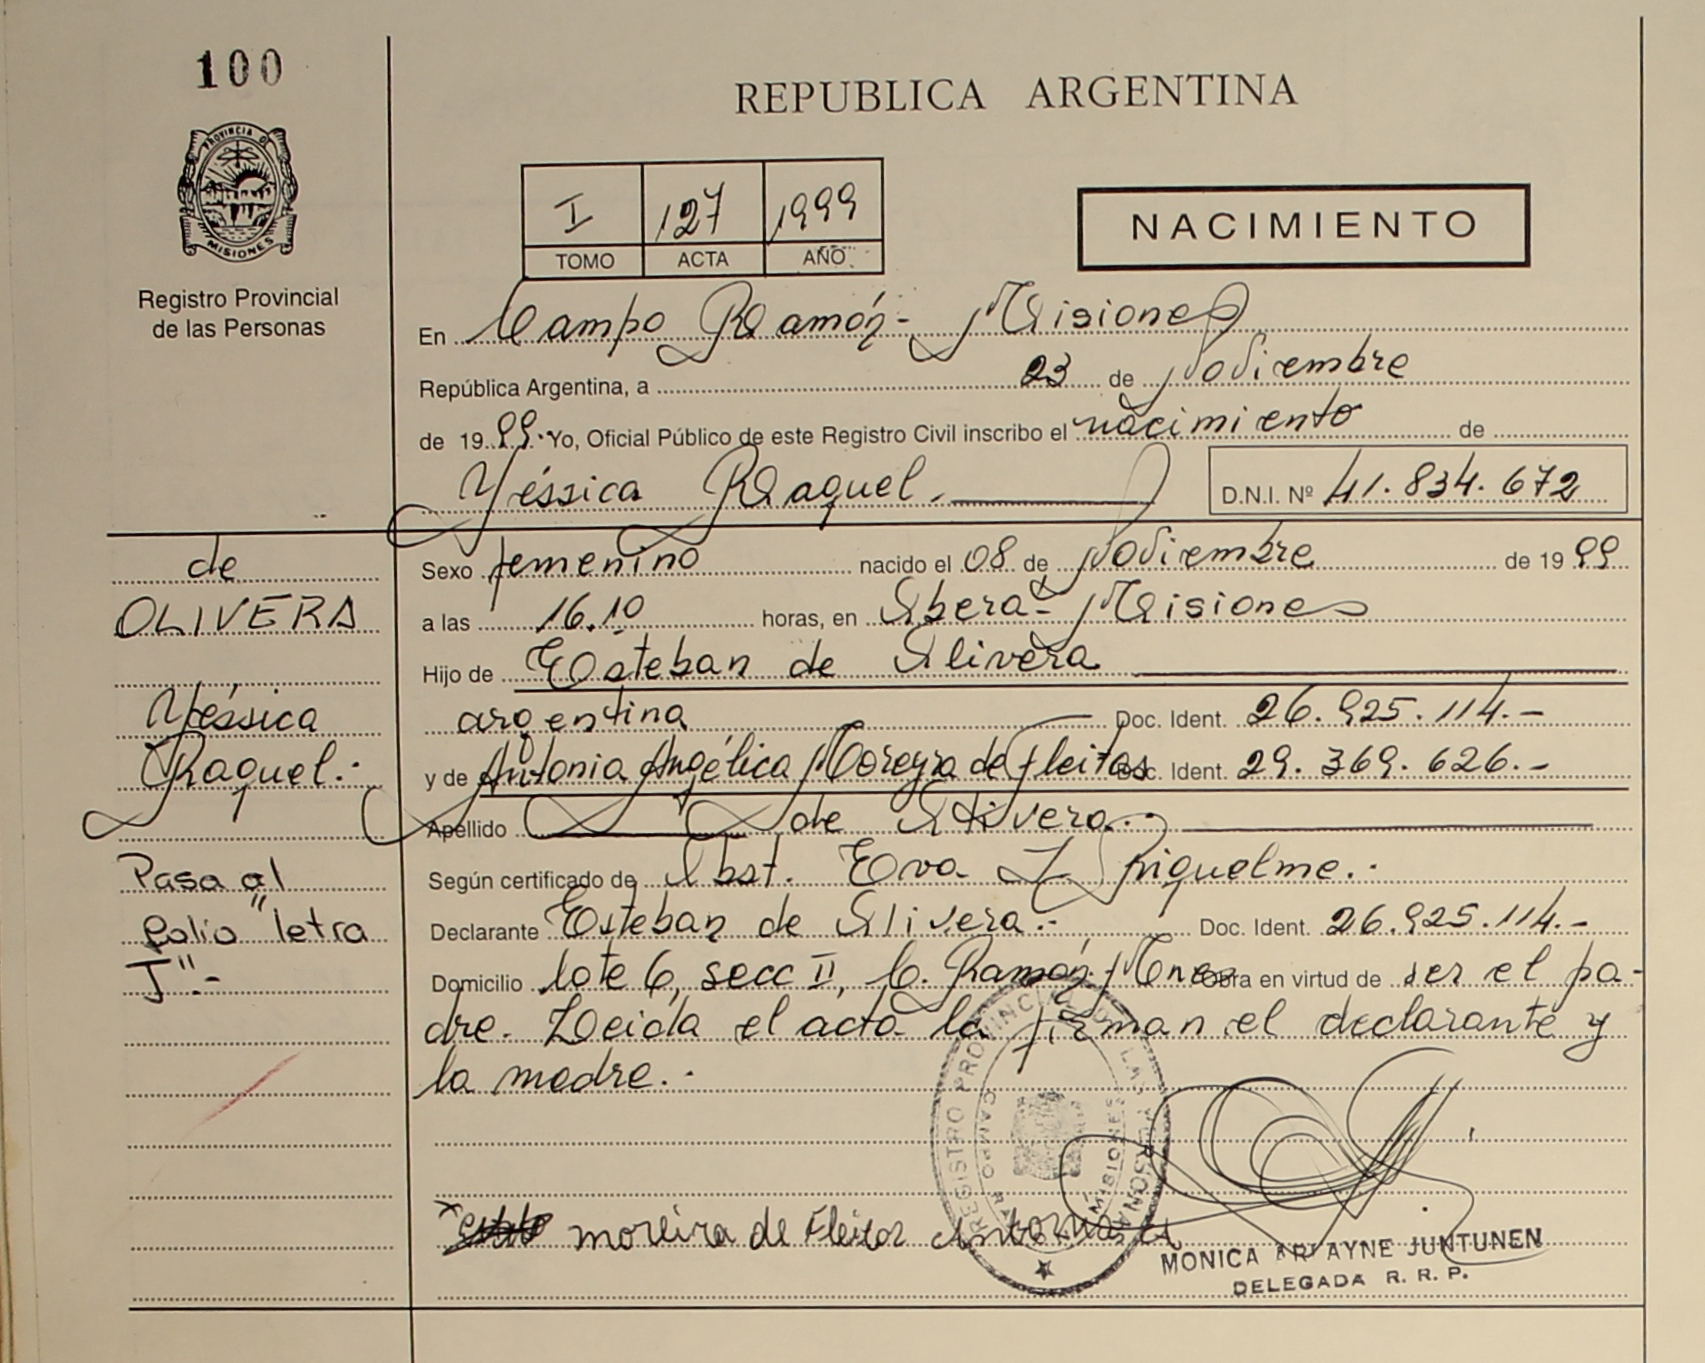 100
PROVINCIA DE
MISIONES
Registro Provincial
de las Personas
REPUBLICA ARGENTINA
I 127 1999
TOMO ACTA AÑO
NACIMIENTO
En Campo Ramón - Misiones
República Argentina, a 23 de Noviembre
de 19 99. Yo, Oficial Público de este Registro Civil inscribo el nacimiento de
Yéssica Raquel. D.N.I. Nº 41.834.672
de
OLIVERA
Yéssica
Raquel.-
Pasa al
folio "letra
J".-
Sexo femenino nacido el 08 de Noviembre de 19 99
a las 16.10 horas, en Oberá - Misiones
Hijo de Esteban de Olivera
argentina Doc. Ident. 26.925.114.-
y de Antonia Angélica Moreyra de Fleitas Doc. Ident. 29.369.626.-
Apellido de Olivera.-
Según certificado de Obst. Eva L Riquelme.-
Declarante Esteban de Olivera.- Doc. Ident. 26.925.114.-
Domicilio lote 6, secc II, C. Ramón, Mnes Obra en virtud de ser el pa-
dre. Leida el acta la firman el declarante y
la madre.-
moreira de Fleitor Antonia
REGISTRO PROVINCIAL DE LAS PERSONAS
CAMPO RAMON MISIONES
MONICA ARLAYNE JUNTUNEN
DELEGADA R. R. P.